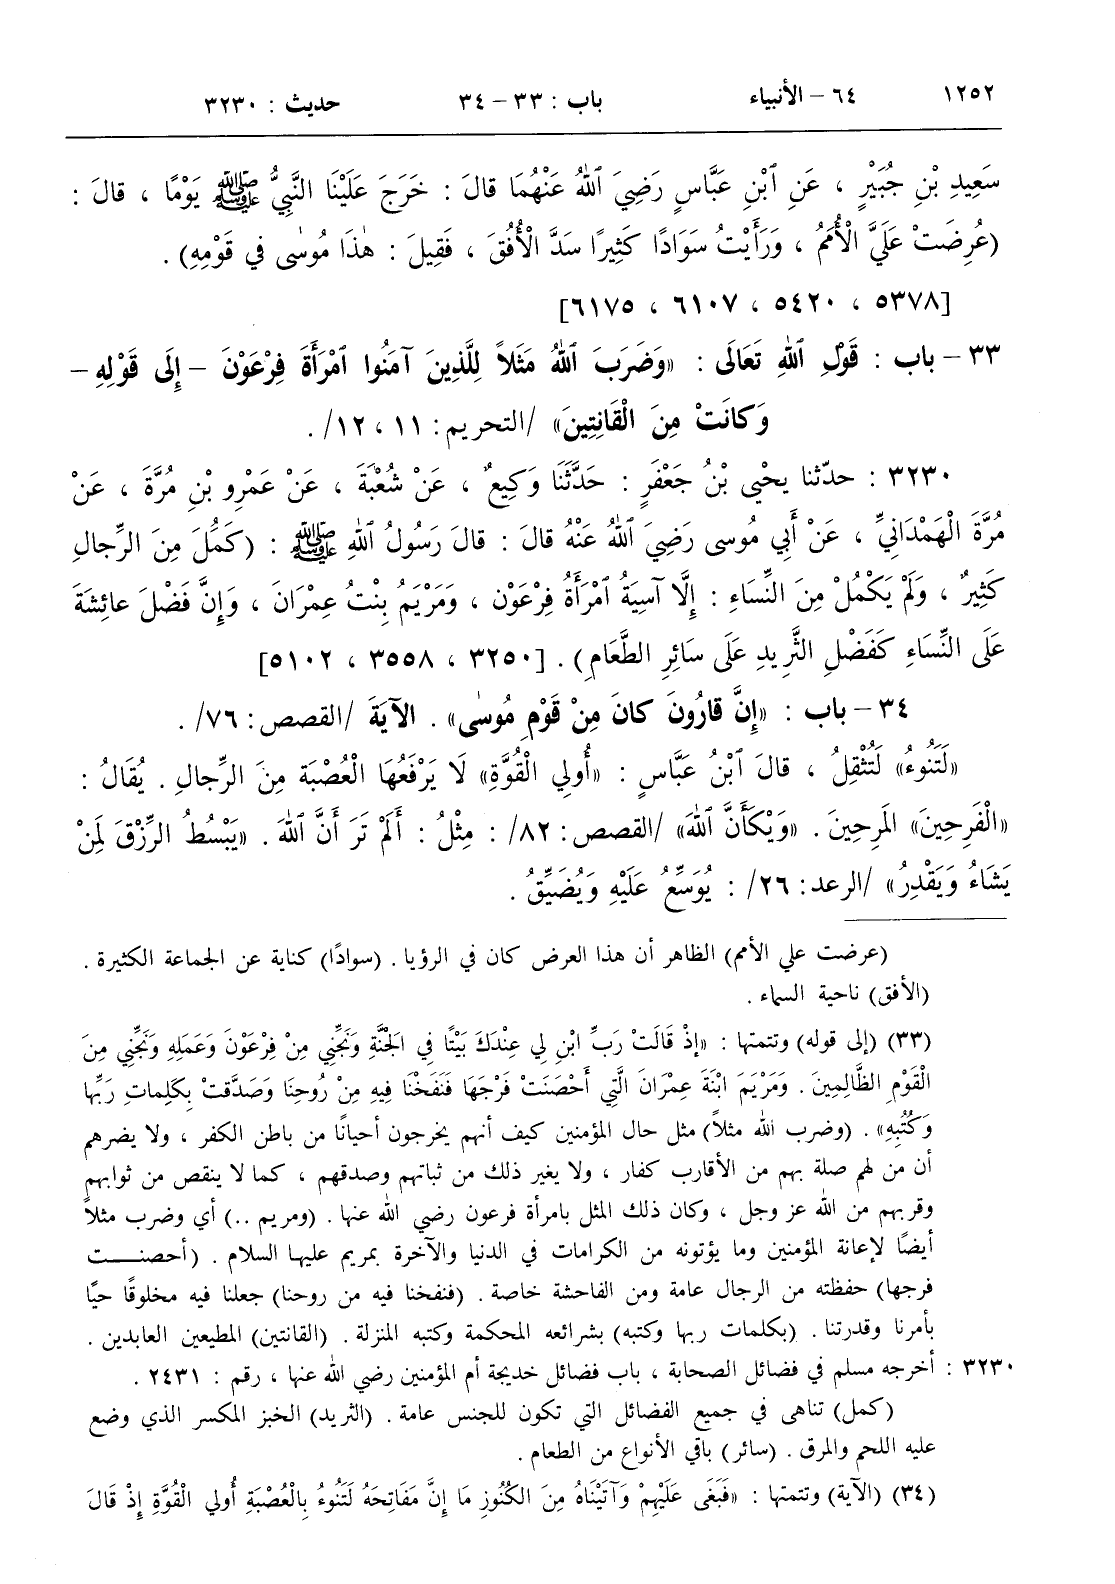 ١٢٥٢ ٦٤ – الأنبياء باب : ٣٣ – ٣٤ حديث : ٣٢٣٠
سَعِيدِ بْنِ جُبَيْرٍ ، عَنِ ٱبْنِ عَبَّاسٍ رَضِيَ ٱللهُ عَنْهُمَا قالَ : خَرَجَ عَلَيْنَا النَّبِيُّ ﷺ يَوْمًا ، قالَ :
(عُرِضَتْ عَلَيَّ الْأُمَمُ ، وَرَأَيْتُ سَوَادًا كَثِيرًا سَدَّ الْأُفُقَ ، فَقِيلَ : هٰذَا مُوسٰى في قَوْمِهِ) .
[٥٣٧٨ ، ٥٤٢٠ ، ٦١٠٧ ، ٦١٧٥]
٣٣ – باب : قَوْلِ ٱللهِ تَعَالَى : «وَضَرَبَ ٱللهُ مَثَلاً لِلَّذِينَ آمَنُوا ٱمْرَأَةَ فِرْعَوْنَ – إِلَى قَوْلِهِ –
وَكانَتْ مِنَ الْقَانِتِينَ» /التحريم: ١١ ، ١٢/ .
٣٢٣٠ : حدّثنا يحْيىٰ بْنُ جَعْفَرٍ : حَدَّثَنَا وَكِيعٌ ، عَنْ شُعْبَةَ ، عَنْ عَمْرِو بْنِ مُرَّةَ ، عَنْ
مُرَّةَ الْهَمْدَانِيِّ ، عَنْ أَبِي مُوسى رَضِيَ ٱللهُ عَنْهُ قالَ : قالَ رَسُولُ ٱللهِ ﷺ : (كَمُلَ مِنَ الرِّجالِ
كَثِيرٌ ، وَلَمْ يَكْمُلْ مِنَ النِّسَاءِ : إِلَّا آسِيَةُ ٱمْرَأَةُ فِرْعَوْنَ ، وَمَرْيَمُ بِنْتُ عِمْرَانَ ، وَإِنَّ فَضْلَ عائِشَةَ
عَلَى النِّسَاءِ كَفَضْلِ الثَّرِيدِ عَلَى سَائِرِ الطَّعَامِ) . [٣٢٥٠ ، ٣٥٥٨ ، ٥١٠٢]
٣٤ – باب : «إِنَّ قارُونَ كانَ مِنْ قَوْمِ مُوسٰى» . الآيَةَ /القصص: ٧٦/ .
«لَتَنُوءُ» لَتُثْقِلُ ، قالَ ٱبْنُ عَبَّاسٍ : «أُولِي الْقُوَّةِ» لَا يَرْفَعُهَا الْعُصْبَة مِنَ الرِّجالِ . يُقَالُ :
«الْفَرِحِينَ» المَرِحِينَ . «وَيْكَأَنَّ ٱللهَ» /القصص: ٨٢/ : مِثْلُ : أَلَمْ تَرَ أَنَّ ٱللهَ . «يَبْسُطُ الرِّزْقَ لِمَنْ
يَشَاءُ وَيَقْدِرُ» /الرعد: ٢٦/ : يُوَسِّعُ عَلَيْهِ وَيُضَيِّقُ .
(عرضت علي الأمم) الظاهر أن هذا العرض كان في الرؤيا . (سوادًا) كناية عن الجماعة الكثيرة .
(الأفق) ناحية السماء .
(٣٣) (إلى قوله) وتتمتها : «إذْ قَالَتْ رَبِّ ابْنِ لِي عِنْدَكَ بَيْتًا فِي الجَنَّةِ وَنَجِّنِي مِنْ فِرْعَوْنَ وَعَمَلِهِ وَنَجِّنِي مِنَ
الْقَوْمِ الظَّالِمِينَ . وَمَرْيَمَ ابْنَةَ عِمْرَانَ الَّتِي أَحْصَنَتْ فَرْجَهَا فَنَفَخْنَا فِيهِ مِنْ رُوحِنَا وَصَدَّقَتْ بِكَلِمَاتِ رَبِّهَا
وَكُتُبِهِ» . (وضرب الله مثلاً) مثل حال المؤمنين كيف أنهم يخرجون أحيانًا من باطن الكفر ، ولا يضرهم
أن من لهم صلة بهم من الأقارب كفار ، ولا يغير ذلك من ثباتهم وصدقهم ، كما لا ينقص من ثوابهم
وقربهم من الله عز وجل ، وكان ذلك المثل بامرأة فرعون رضي الله عنها . (ومريم ..) أي وضرب مثلاً
أيضًا لإعانة المؤمنين وما يؤتونه من الكرامات في الدنيا والآخرة بمريم عليها السلام . (أحصنت
فرجها) حفظته من الرجال عامة ومن الفاحشة خاصة . (فنفخنا فيه من روحنا) جعلنا فيه مخلوقًا حيًّا
بأمرنا وقدرتنا . (بكلمات ربها وكتبه) بشرائعه المحكمة وكتبه المنزلة . (القانتين) المطيعين العابدين .
٣٢٣٠ : أخرجه مسلم في فضائل الصحابة ، باب فضائل خديجة أم المؤمنين رضي الله عنها ، رقم : ٢٤٣١ .
(كمل) تناهى في جميع الفضائل التي تكون للجنس عامة . (الثريد) الخبز المكسر الذي وضع
عليه اللحم والمرق . (سائر) باقي الأنواع من الطعام .
(٣٤) (الآية) وتتمتها : «فَبَغَى عَلَيْهِمْ وَآتَيْنَاهُ مِنَ الكُنُوزِ مَا إِنَّ مَفَاتِحَهُ لَتَنُوءُ بِالْعُصْبَةِ أُولي الْقُوَّةِ إِذْ قَالَ